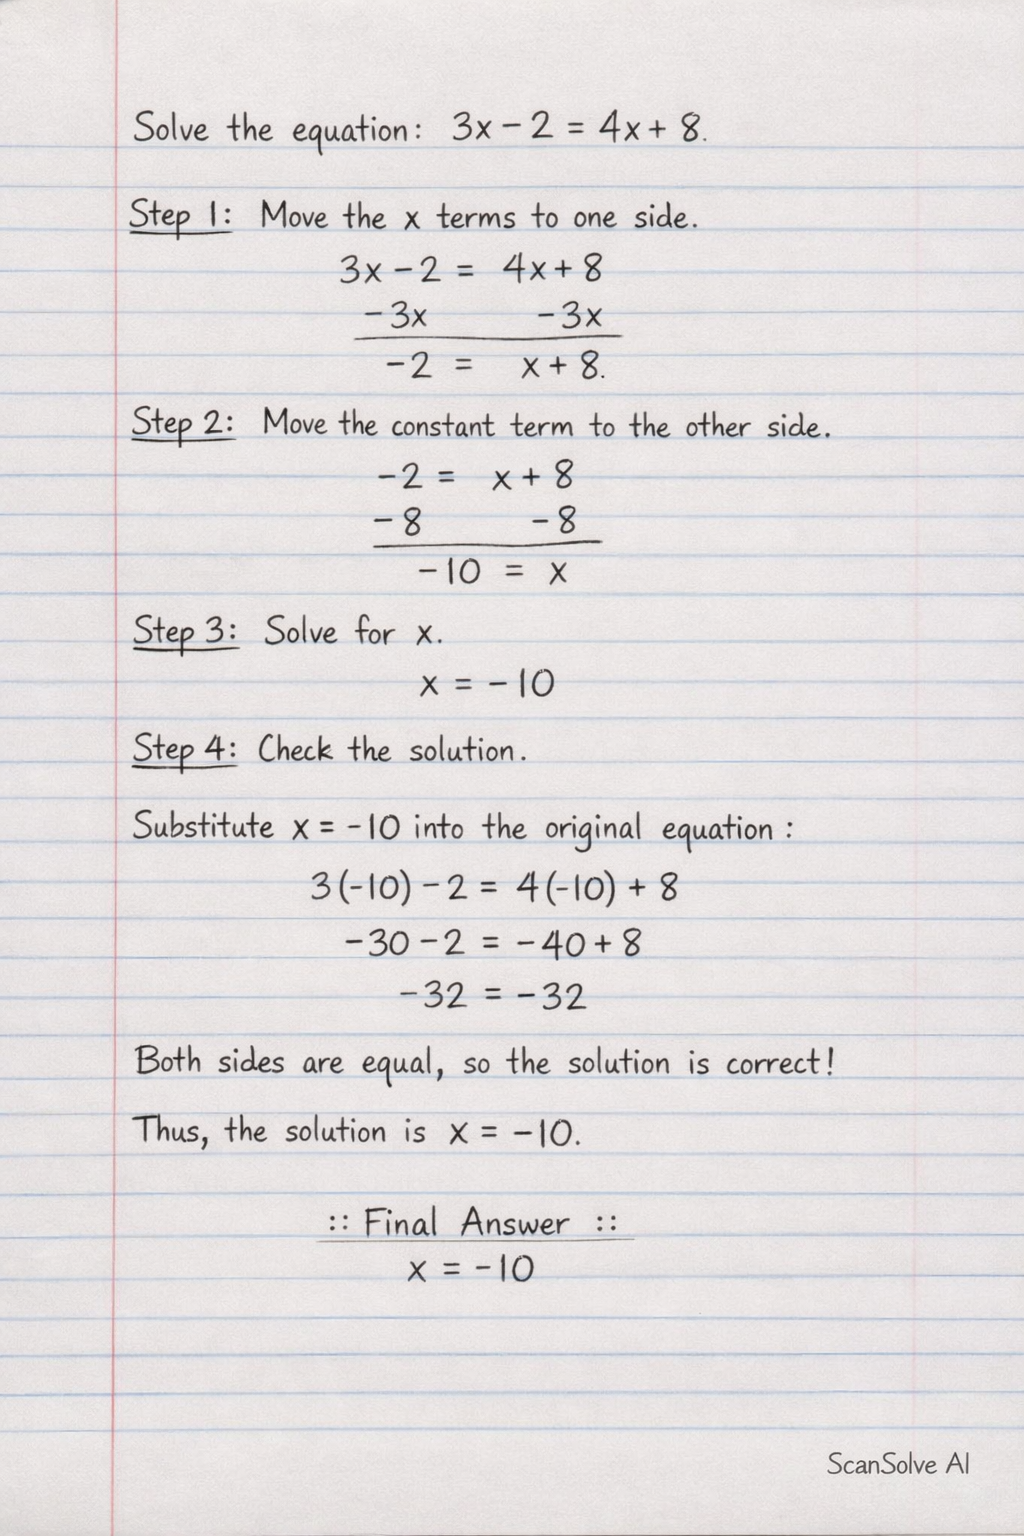 Solve the equation: 3x - 2 = 4x + 8.
Step 1: Move the x terms to one side.
3x - 2 = 4x + 8
- 3x - 3x
-2 = x + 8.
Step 2: Move the constant term to the other side.
-2 = x + 8
- 8 - 8
-10 = x
Step 3: Solve for x.
x = -10
Step 4: Check the solution.
Substitute x = -10 into the original equation:
3(-10) - 2 = 4(-10) + 8
-30 - 2 = -40 + 8
-32 = -32
Both sides are equal, so the solution is correct!
Thus, the solution is x = -10.
:: Final Answer ::
x = -10
ScanSolve AI